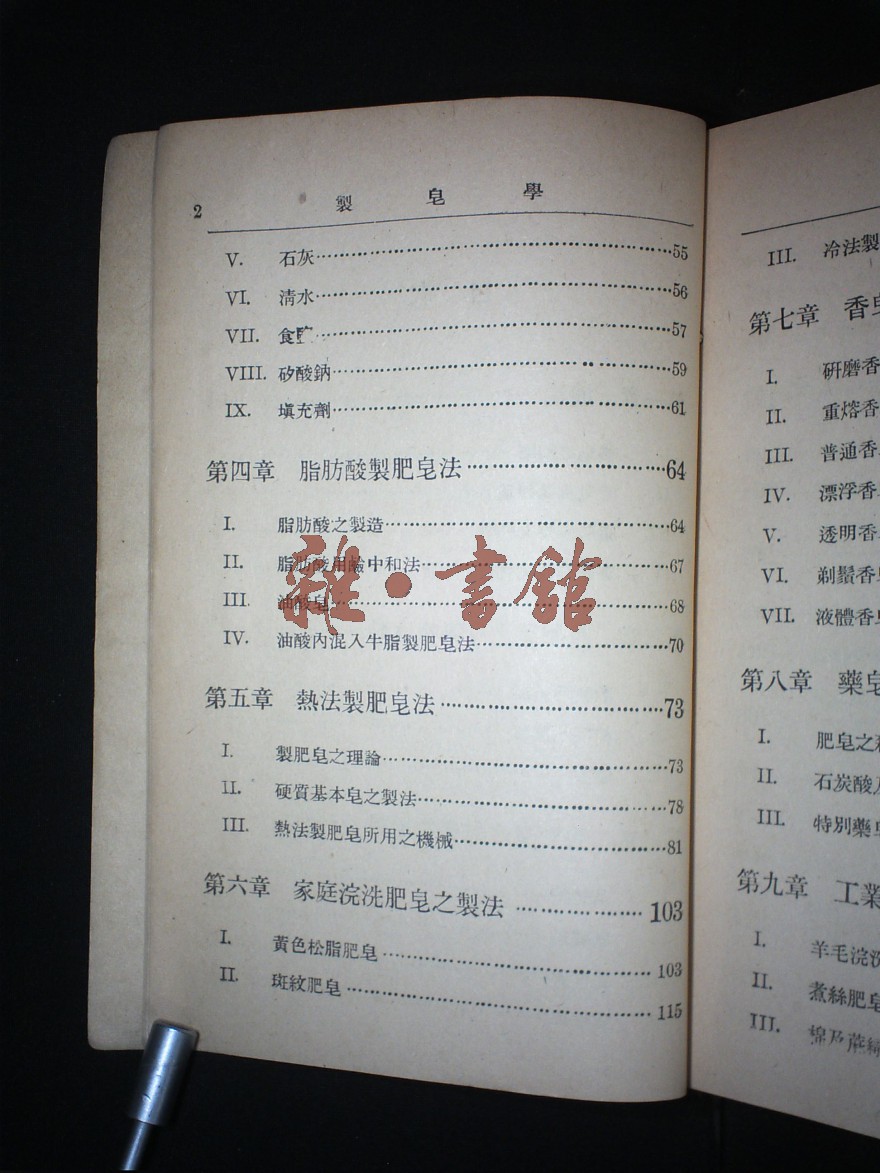 2 製皂學
V. 石灰 55
VI. 清水 56
VII. 食鹽 57
VIII. 矽酸鈉 59
IX. 塡充劑 61
第四章 脂肪酸製肥皂法 64
I. 脂肪酸之製造 64
II. 脂肪酸用鹼中和法 67
III. 油酸皂 68
IV. 油酸內混入牛脂製肥皂法 70
第五章 熱法製肥皂法 73
I. 製肥皂之理論 73
II. 硬質基本皂之製法 78
III. 熱法製肥皂所用之機械 81
第六章 家庭浣洗肥皂之製法 103
I. 黃色松脂肥皂 103
II. 斑紋肥皂 115
雜·書館
III. 冷法製
第七章 香皂
I. 研磨香
II. 重熔香
III. 普通香
IV. 漂浮香
V. 透明香
VI. 剃鬚香
VII. 液體香
第八章 藥皂
I. 肥皂之
II. 石炭酸
III. 特別藥皂
第九章 工業
I. 羊毛浣洗
II. 煮絲肥皂
III. 棉及蔴